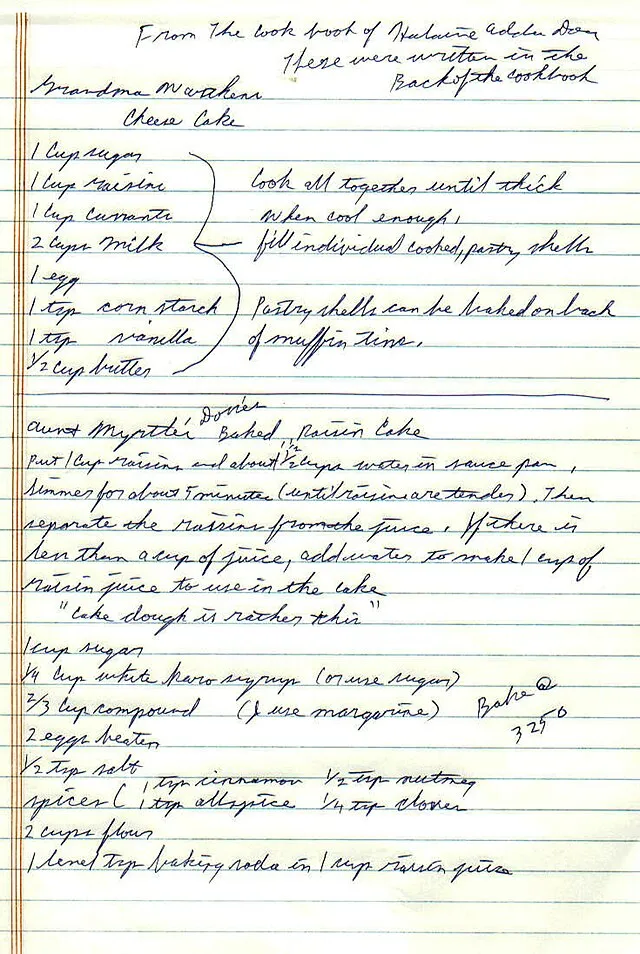 From The cook book of
These were written in the
Back of the cookbook
Grandma
Cheese Cake
1 Cup sugar
1 Cup raisins
1 Cup currants
2 cups Milk
1 egg
1 tsp corn starch
1 tsp vanilla
1/2 cup butter
Cook all together until thick
when cool enough,
fill individual cooked, pastry shells
Pastry shells can be baked on back
of muffin tins.
Aunt Myrtle Baked Raisin Cake
Put 1 cup raisins and about 1 1/2 cups water in sauce pan,
simmer for about 5 minutes (until raisins are tender). Then
separate the raisins from the juice. If there is
less than a cup of juice, add water to make 1 cup of
raisin juice to use in the cake
"Cake dough is rather thin"
1 cup sugar
1/4 cup white karo syrup (or use sugar)
2/3 cup compound (I use margarine)
Bake @
325°
2 eggs beaten
1/2 tsp salt
spices ( 1 tsp cinnamon 1/2 tsp nutmeg
1 tsp allspice 1/4 tsp cloves
2 cups flour
1 level tsp baking soda in 1 cup raisin juice